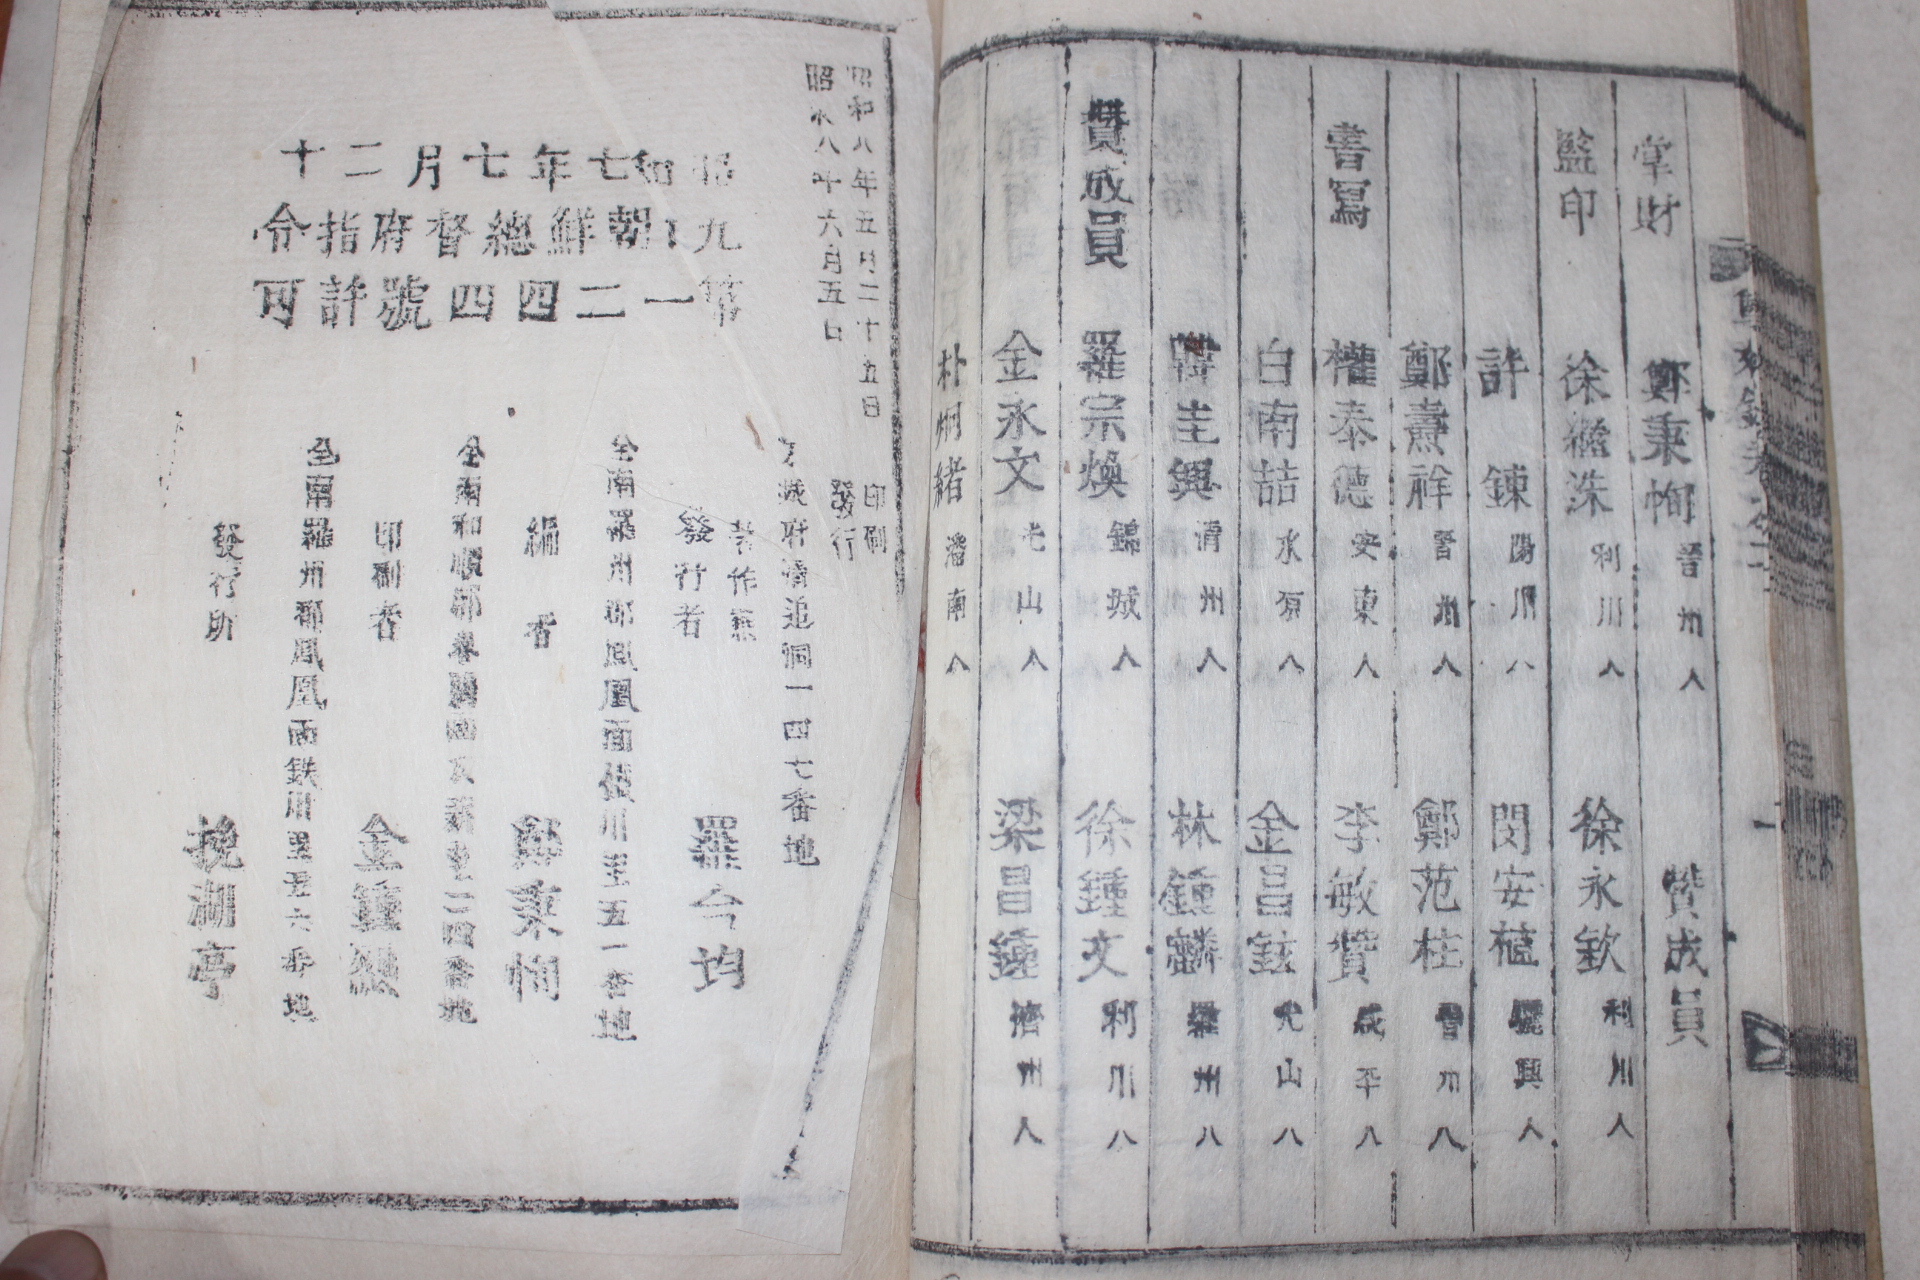 掌財 鄭秉恂 晋州人 贊成員
監印 徐繼洙 利川人 徐永欽 利川人
許鍊 陽川人 閔安植 驪興人
鄭熹祥 晋州人 鄭范柱 晋州人
書寫 權泰德 安東人 李敏贊 咸平人
白南喆 水原人 金昌鉉 光山人
韓圭興 淸州人 林鍾麟 羅州人
贊成員 羅宗煥 錦城人 徐鍾文 利川人
金永文 光山人 梁昌鍾 濟州人
朴炯緖 潘南人
昭和八年五月二十五日 印刷
昭和八年六月五日 發行
昭和七年七月二十
九日朝鮮總督府指令
第一二四四號許可
城府 洞一四七番地
著作兼
發行者 羅今均
全南羅州郡鳳凰面 川里五一番地
編者 鄭秉恂
全南和順郡 二四番地
印刷者 金鍾
全南羅州郡鳳凰面鉄川里 六番地
發行所 挽湖亭